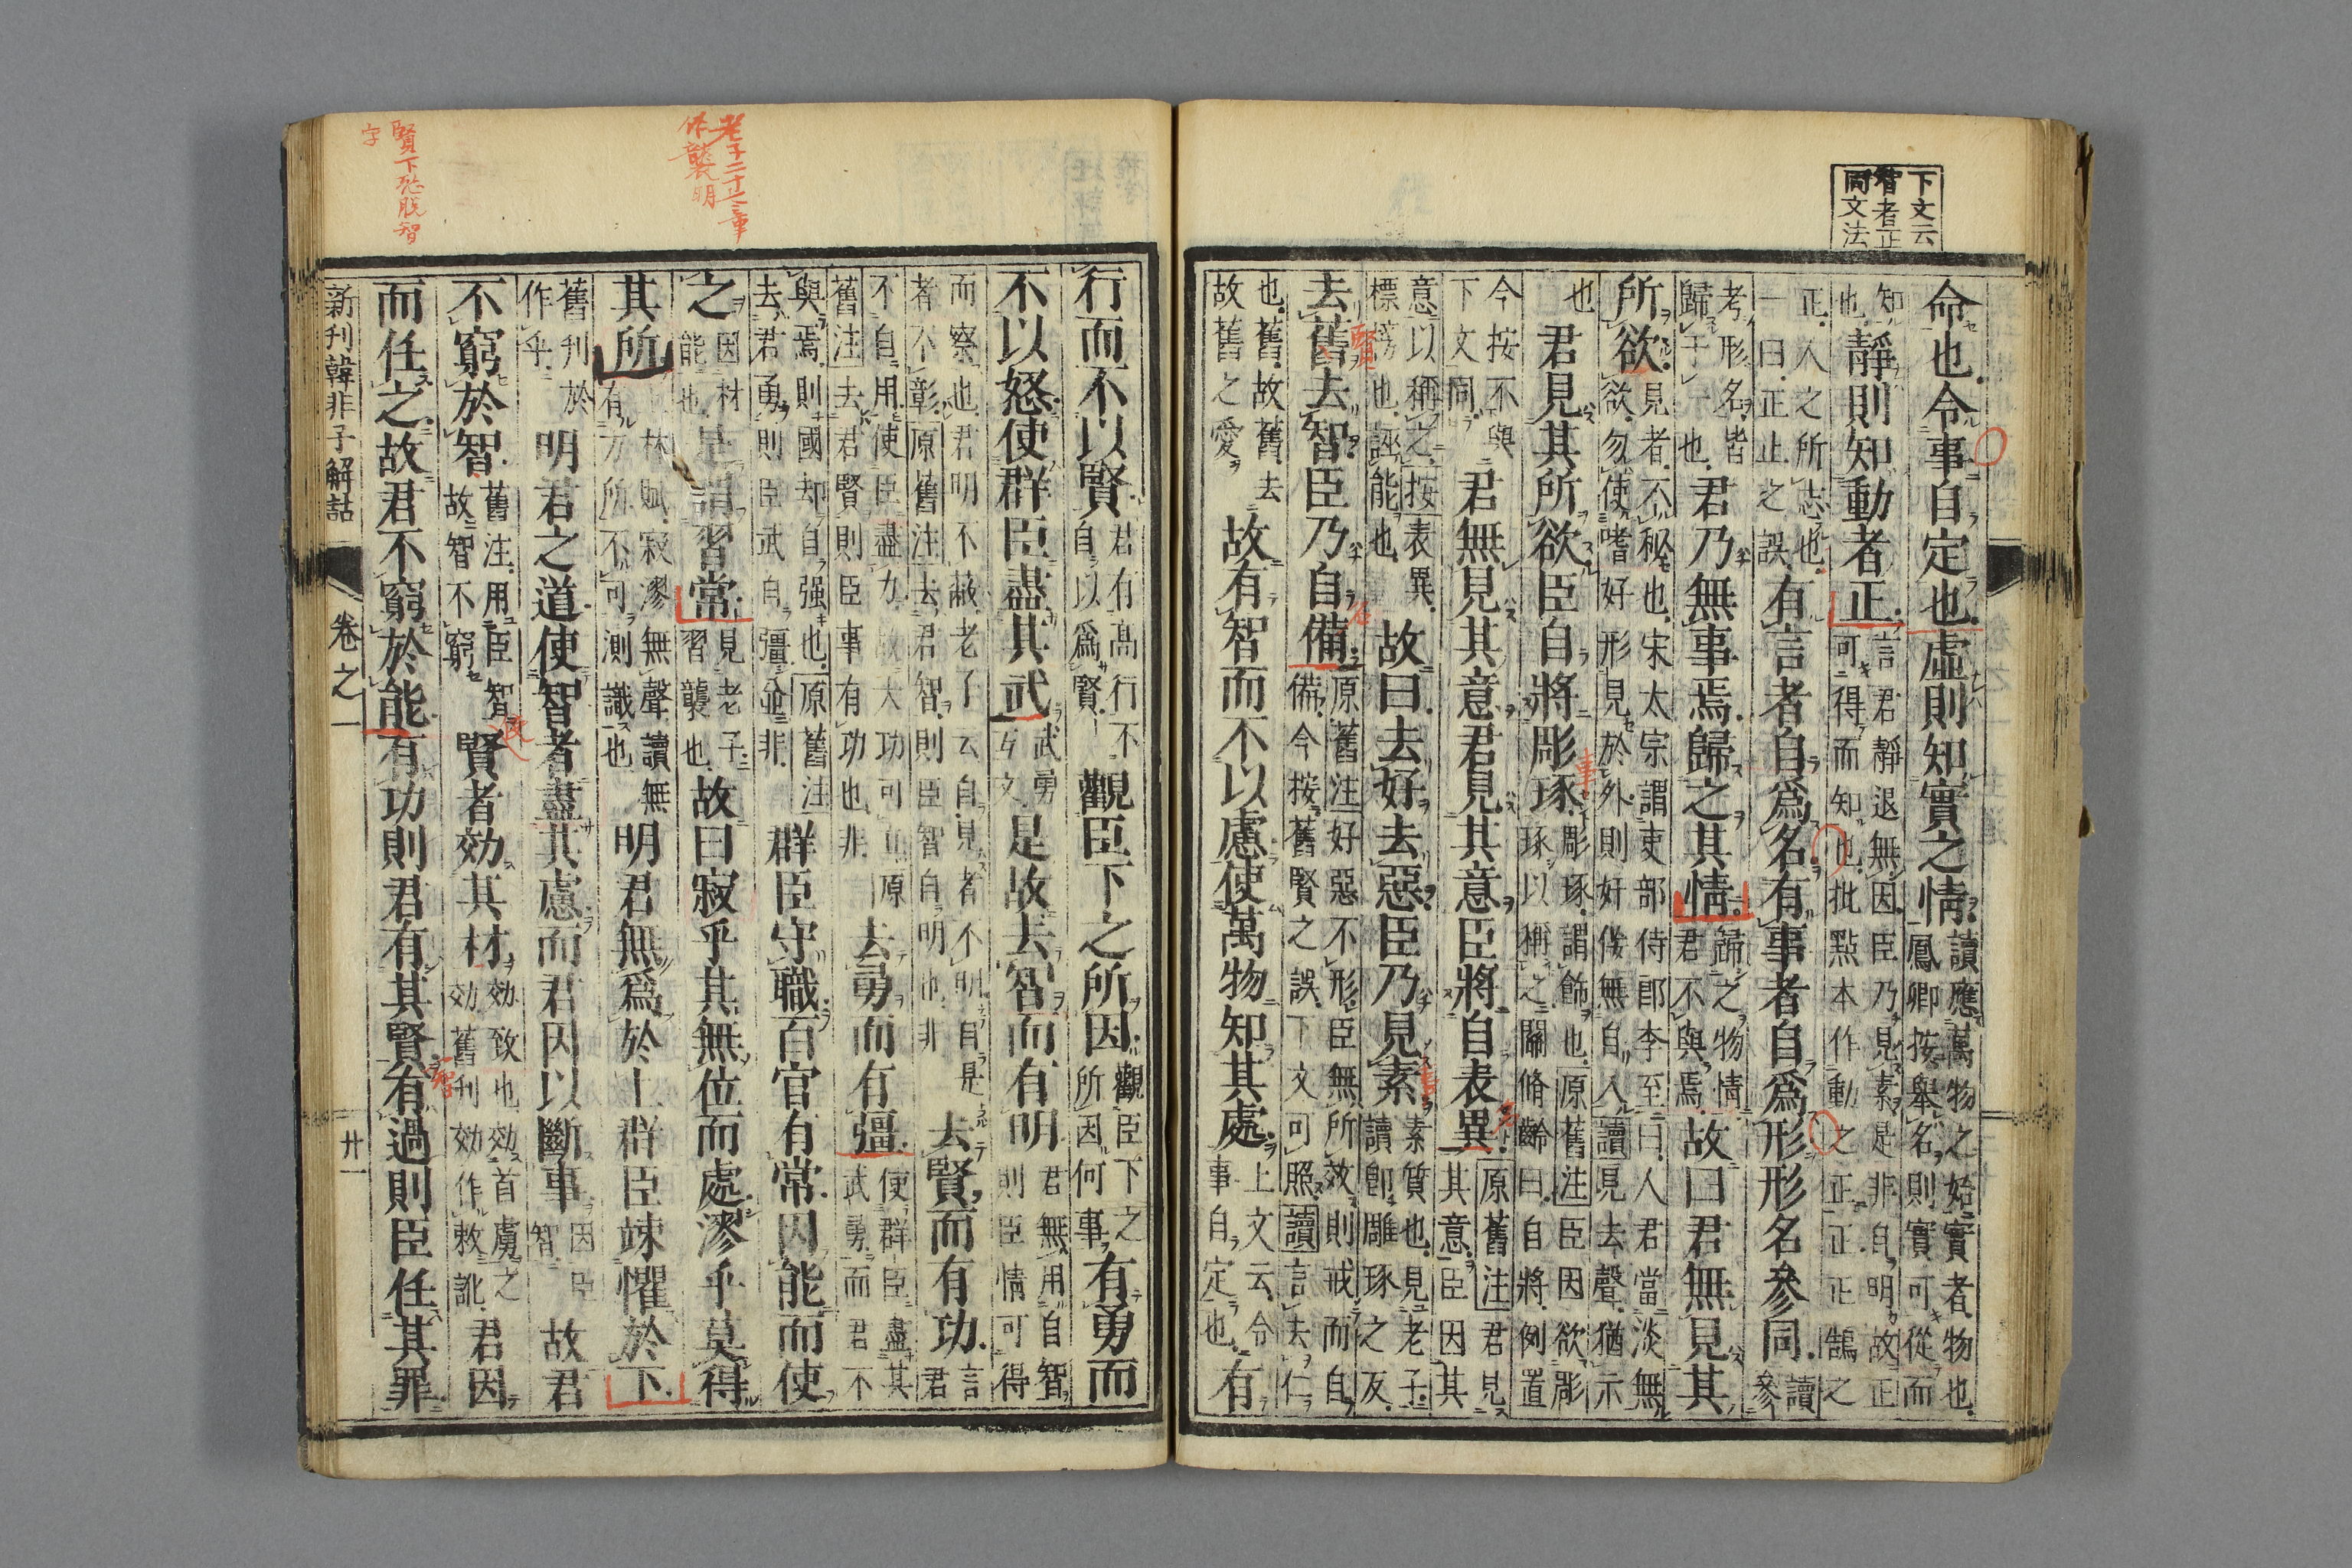 下文云
智者正
同文法
命也令事自定也虛則知實之情讀應萬物之始實者物也鳳卿按舉名則實可從而
知也靜則知動者正言君靜退無因臣乃見素是非自明故正可得而知也批點本作動之正正正鵠之
正人之所志也一曰正止之誤有言者自爲名有事者自爲形形名參同讀參
考形名皆歸于一也君乃無事焉歸之其情歸之物情君不與焉故曰君無見其
所欲見者不秘也宋太宗謂吏部侍郎李至曰人君當淡無欲勿使嗜好形見於外則奸佞無自入讀見去聲猶示
也君見其所欲臣自將彫琢彫琢謂飾也原舊注臣因欲彫琢以稱之關脩齡曰自將例置
今按不與下文同君無見其意君見其意臣將自表異原舊注君見其意臣因其
意以稱之按表異標榜也誣能也故曰去好去惡臣乃見素素質也見老子讀卽雕琢之反
去舊去智臣乃自備原舊注好惡不形臣無所效則戒而自備今按舊賢之誤下文可照讀言去仁
也舊故舊去故舊之愛故有智而不以慮使萬物知其處上文云令事自定也有
賢
事
老子二十二章
作襲明
賢下恐脫智
字
行而不以賢君有高行不自以爲賢觀臣下之所因觀臣下之所因何事有勇而
不以怒使群臣盡其武武勇互文是故去智而有明君無用自智則臣情可得
而察也君明不蔽老子云自見者不明自是者不彰原舊注去君智則臣智自明也非去賢而有功言君
不自用使臣盡力故大功可立原舊注去君賢則臣事有功也非去勇而有彊使群臣盡其武勇而君不
與焉則國却自强也原舊注去君勇則臣武自彊並非群臣守職百官有常因能而使
之因材能也是謂習常見老子習襲也故曰寂乎其無位而處漻乎莫得
其所有方所不可測識也寂漻無聲讀無明君無爲於上群臣竦懼於下
舊刊於作乎明君之道使智者盡其慮而君因以斷事因臣智故君
不窮於智舊注用臣智故智不窮賢者効其材効致也効首虜之効舊刊効作敕訛君因
而任之故君不窮於能有功則君有其賢有過則臣任其罪
智
新刊韓非子解詁
卷之一
廿一